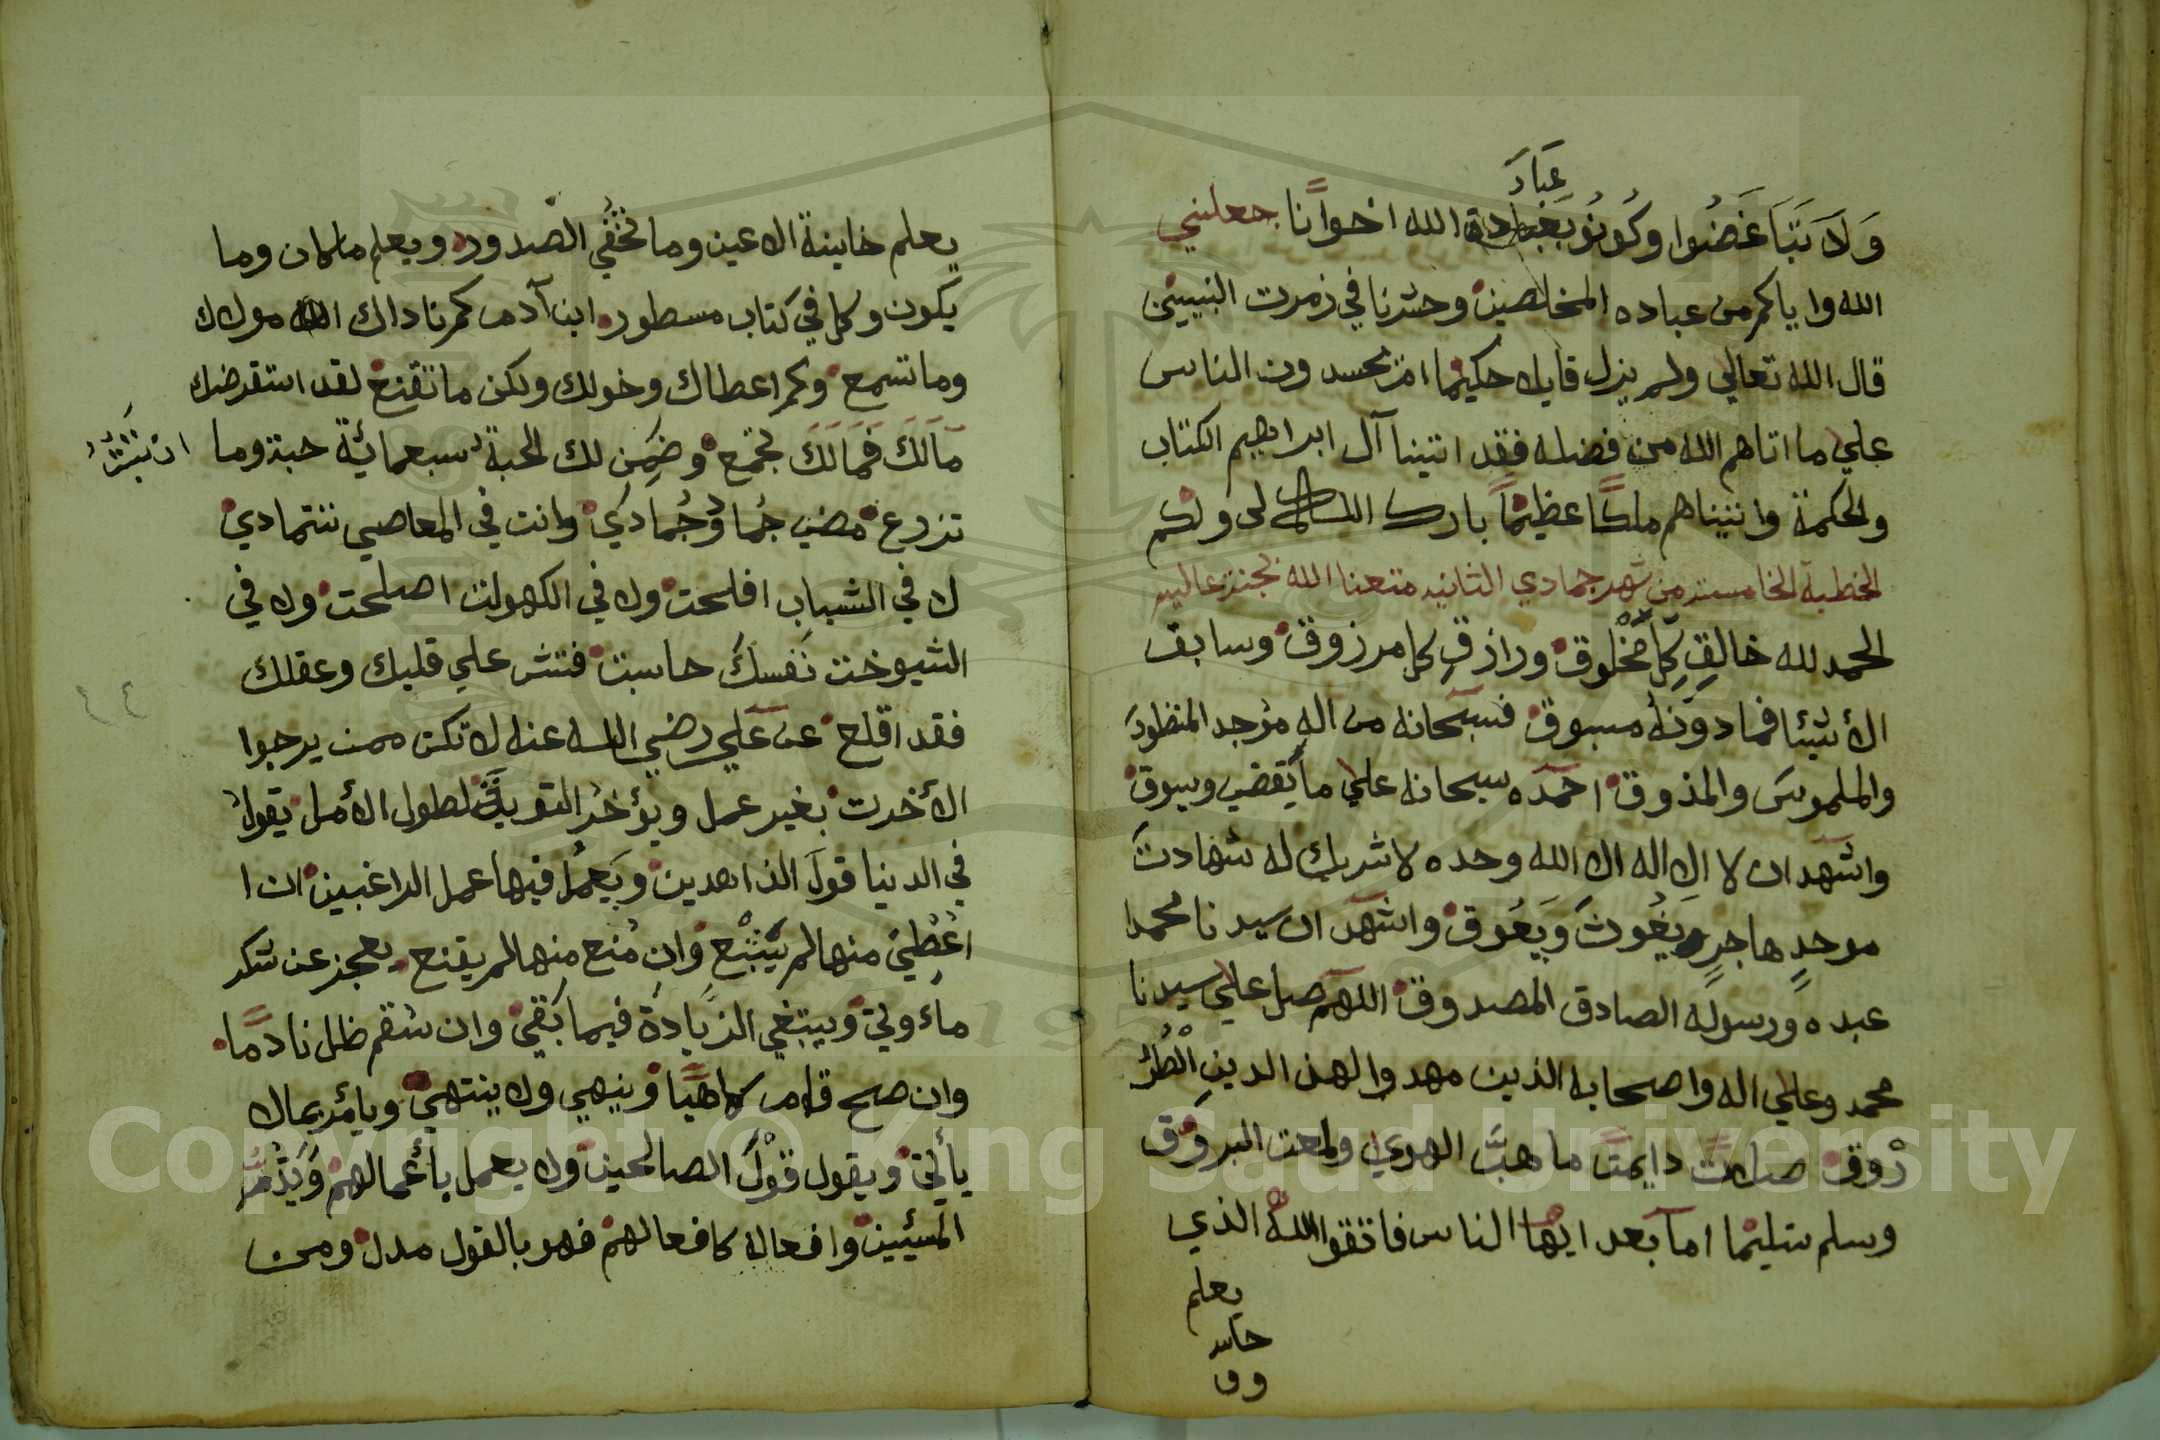 عباد
ولا تباغضوا وكونوا الله اخوانا جعلني
الله واياكم من عباده المخلصين وحشرنا في زمرت النبيين
قال الله تعالي ولم يزل قايلا حكيما ام يحسدون الناس
علي ما اتاهم الله من فضله فقد اتينا آل ابراهيم الكتاب
والحكمة واتيناهم ملكا عظيما بارك الله لي ولكم
الخطبة الخامسة من شهر جمادي الثانيه متعنا الله بجنة عاليه
الحمد لله خالق كل مخلوق ورازق كل مرزوق وسابق
الأشيا فما دونه مسبوق فسبحانه من اله موجد المنظور
والملموس والمذوق احمده سبحانه علي ما يقضي ويسوق
واشهد ان لا اله الا الله وحده لا شريك له شهادت
موحد هاجر يغوث ويعوق واشهد ان سيدنا محمدا
عبده ورسوله الصادق المصدوق اللهم صل علي سيدنا
محمد وعلي اله واصحابه الذين مهدوا لهذ الدين الطر
روق صلات دايمت ما هب الهوي ولمعت البروق
وسلم تسليما اما بعد ايها الناس فاتقوا الله الذي
يعلم
يعلم خاينة الاعين وما تخفي الصدور ويعلم ما كان وما
يكون وكل في كتاب مسطور ابن آدم كم ناداك مولاك
وما تسمع وكم اعطاك وخولك ولكن ما تقنع لقد استقرضك
مالك فمالك تجمع وضمن لك الحبة سبعمائة حبة وما
تزرع مضي جما وجمادي وانت في المعاصي تتمادي
لا في الشباب افلحت ولا في الكهولت اصلحت ولا في
الشيوخت نفسك حاسبت فتش علي قلبك وعقلك
فقد اقلع عن علي رضي الله عنه لا تكن ممن يرجوا
الأخرت بغير عمل ويؤخر التوبة لطول الأمل يقول
في الدنيا قول الزاهدين ويعمل فيها عمل الراغبين ان ا
اعطي منها لم يشبع وان منع منها لم يقنع يعجز عن شكر
ما اوتي ويبتغي الزيادة فيما بقي وان سقم ظل نادما
وان صح قام لاهيا وينهي ولا ينتهي ويأمر بما لا
يأتي ويقول قول الصالحين ولا يعمل بأعمالهم
المسيئين وافعاله كافعالهم فهو بالقول مدل ومن